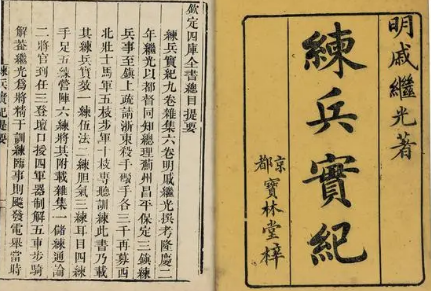 明戚繼光著
練兵實紀
京都寶林堂梓
欽定四庫全書總目提要
練兵實紀九卷雜集六卷明戚繼光撰考隆慶二
年繼光以都督同知總理薊州昌平保定三鎮練
兵事至鎮上疏請浙東殺手礮手各三千再募西
北壯士馬軍五枝步軍十枝專聽訓練此書乃載
其練兵實效一練伍法二練胆氣三練耳目四練
手足五練營陣六練將其附載雜集一儲練通論
二將官到任三登壇口授四軍器制解五車步騎
解葢繼光為將精于訓練臨事則飈發電舉當時
練兵實紀提要